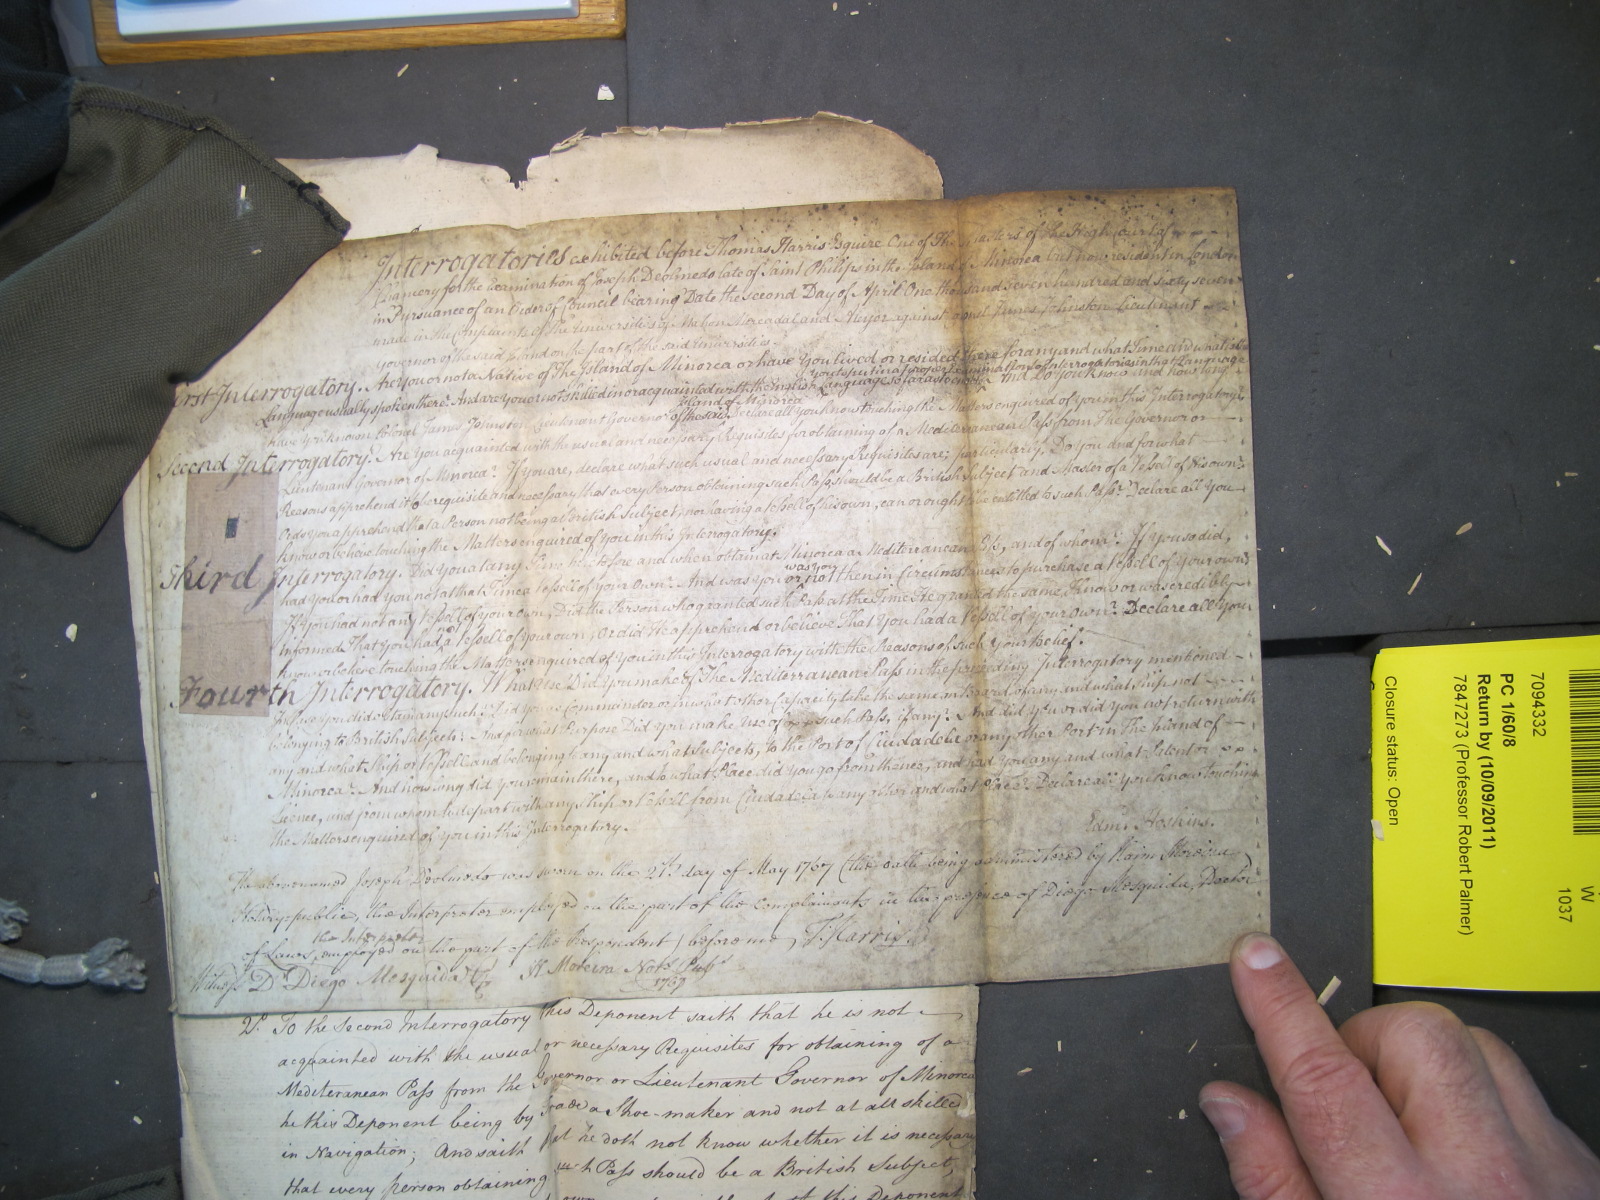 Interrogatories exhibited before Thomas Harris Esquire One of The Masters of the High Court of
Chancery for the Examination of Joseph Deolmedo late of Saint Philips in the Island of Minorca but now resident in London
in Pursuance of an Order of Council bearing Date the second Day of April One thousand seven hundred and sixty seven
made in the Complaints of the Universities of Mahon Mercadal and Alayor against James Johnston Lieutenant
Governor of the said Island on the part of the said Universities.
First Interrogatory. Are You or not a Native of The Island of Minorca or have You lived or resided There for any and what Time and what is the
Language usually spoken there? And are you or not skilled in or acquainted with the English Language so far as to And Do You know and how long
have You known Colonel James Johnston Lieutenant Governor of the said Island of Minorca Declare all You know touching the Matters enquired of You in this Interrogatory.
Second Interrogatory. Are You acquainted with the usual and necessary Requisites for obtaining of a Mediterranean Pass from The Governor or
Lieutenant Governor of Minorca? If you are, declare what such usual and necessary Requisites are; particularly. Do You and for what
Reasons apprehend it to be requisite and necessary that every Person obtaining such Pass should be a British Subject and Master of a Vessell of His own?
Or do You apprehend that a Person not being a British Subject, nor having a Vessell of his own, can or ought to be entitled to such Pass? Declare all You
know or believe touching the Matters enquired of You in this Interrogatory.
Third Interrogatory. Did You at any Time heretofore and when obtain at Minorca a Mediterranean Pass, and of whom? If You so did,
had You or had You not at that Time a Vessell of Your Own? And was You was you or not then in Circumstances to purchase a Vessell of Your own?
If You had not any Vessell of your own, Did the Person who granted such Pass at the Time He granted the same, know or was credibly
informed That You had a Vessell of Your own, Or did He apprehend or believe That You had a Vessell of Your own? Declare all You
know or believe touching the Matters enquired of You in this Interrogatory with the Reasons of such Your belief.
Fourth Interrogatory. What Use Did You make of The Mediterranean Pass in the preceding Interrogatory mentioned
In Case You did obtain any such? Did You as Commander or in what other Capacity take the same on Board of any and what Ship not
belonging to British Subjects? And for what Purpose Did You make Use of such Pass, if any? And did You or did You not return with
any and what Ship or Vessell and belonging to any and what Subjects, to the Port of Ciudadela or any other Port in The Island of
Minorca? And how long did You remain there, and to what Place did You go from thence, and had You any and what Patent or
Licence, and from whom to depart with any Ship or Vessell from Ciudadela to any other and what Place? Declare all You know touching
the Matters enquired of You in this Interrogatory.
Edm: Hoskins.
The abovenamed Joseph Deolmedo was sworn on the 21st day of May 1767 (the oath being administered by Haim Moreira
Notary public, the Interpreter employed on the part of the Complainants in the presence of Diego Mosquida, Doctor
of Laws, the Interpreter employed on the part of the Respondent) before me, T. Harris.
Witness Dr Diego Mosquida H Moreira Notr Pubc
1767
2d. To the Second Interrogatory this Deponent saith that he is not
acquainted with the usual or necessary Requisites for obtaining of a
Mediteranean Pass from the Governor or Lieutenant Governor of Minorca
he this Deponent being by Trade a Shoe-maker and not at all skilled
in Navigation; And saith that he doth not know whether it is necessary
that every person obtaining such Pass should be a British Subject,
this Deponent
7094332
PC 1/60/8
Return by (10/09/2011)
7847273 (Professor Robert Palmer)
Closure status: Open
W
1037